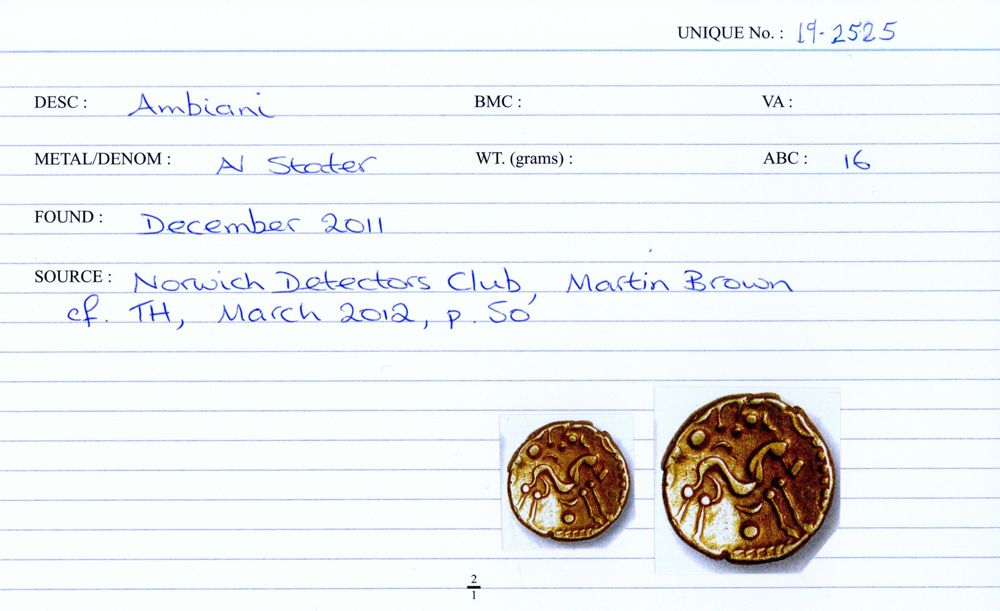 UNIQUE No. : 19-2525
DESC : Ambiani BMC : VA :
METAL/DENOM : AV Stater WT. (grams) : ABC : 16
FOUND : December 2011
SOURCE : Norwich Detectors Club, Martin Brown
cf. TH, March 2012, p. 50
2
1